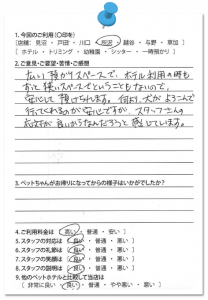 1. 今回のご利用(○印を)
[店舗: 見沼 ・ 戸田 ・ 川口 ・ 所沢 ・ 越谷 ・ 与野 ・ 草加 ]
[ ホテル ・ トリミング ・ 幼稚園 ・ シッター ・ 一時預かり ]
2. ご意見・ご要望・苦情・ご感想
広い預かりスペースで、ホテル利用の時も
ずっと狭いスペースということもないので、
安心して預けられます。何より、犬がよろこんで
行ってくれるのが安心ですが、スタッフさんの
対応が良いからなんだろうと感じています。
3. ペットちゃんがお帰りになってからの様子はいかがでしたか?
4. ご利用料金は [ 高い ・ 普通 ・ 安い ]
5. スタッフの対応は [ 良い ・ 普通 ・ 悪い ]
6. スタッフの礼節は [ 良い ・ 普通 ・ 悪い ]
7. スタッフの笑顔は [ 良い ・ 普通 ・ 悪い ]
8. スタッフの説明は [ 良い ・ 普通 ・ 悪い ]
9. 他のペットホテルと比較して当店は
[ 非常に良い ・ 良い ・ 普通 ・ やや悪い ・ 悪い ]